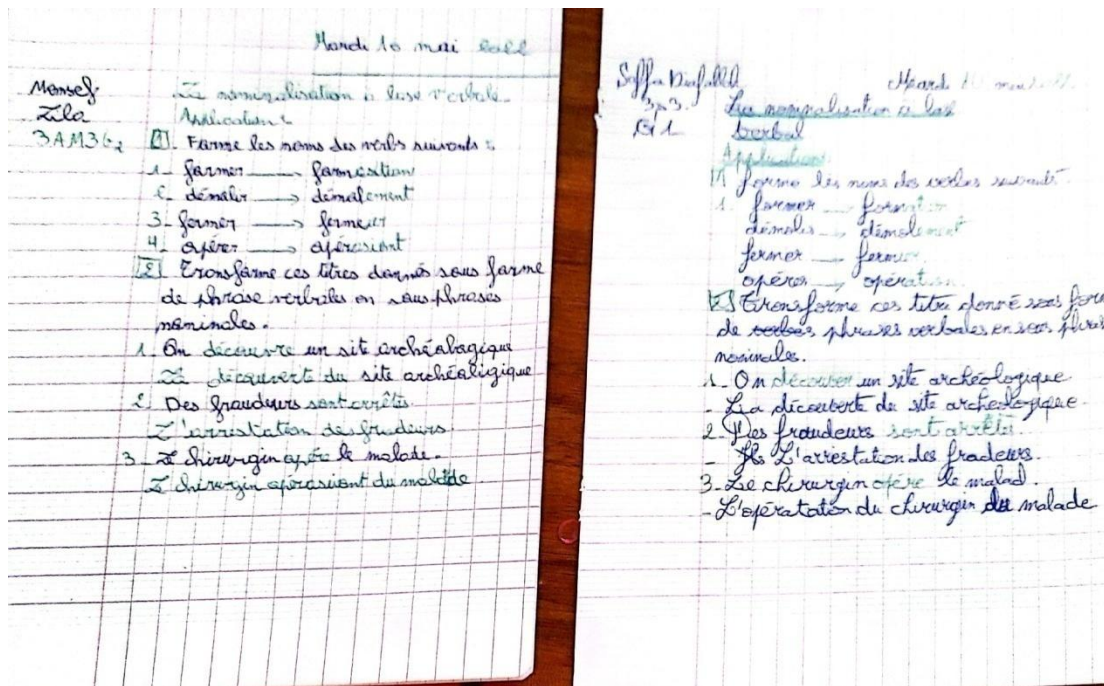 Mardi 10 mai 2022
Monsef
Zila
3AM3G2
La nominalisation à base verbale
Application :
1 Forme les noms des verbs suivants :
1. former → formosition
2. démolir → démolement
3. fermer → fermeur
4. opérer → opérasiont
2 Transforme ces titres donnés sous forme
de phrase verbales en sous phrases
nominales.
1. On découvre un site archéologique
La découverte du site archéoligique
2. Des fraudeurs sont arrêtés
L'arrestation des frudeurs.
3. Le chirurgin opére le malade.
L chirurgin opérasiiont du malade
Mardi 10 mai
3
G1
La nominalisation à bas
verbal
Application
1 forme les noms des verbes suivants.
1. former → formation
démolir → démolement
fermer → fermeur
opérer → opération.
2 Transforme ces titre donné sous form
de verbes phrases verbales en sous phrases
nominales.
1. On découver un site archéologique
- La découberte du site archéologique.
2. Des fraudeurs sont arrêté.
- Ils L'arrestation des fradeurs.
3. Le chirurgin opére le malad.
- L'opératatoin du chirurgin du malade